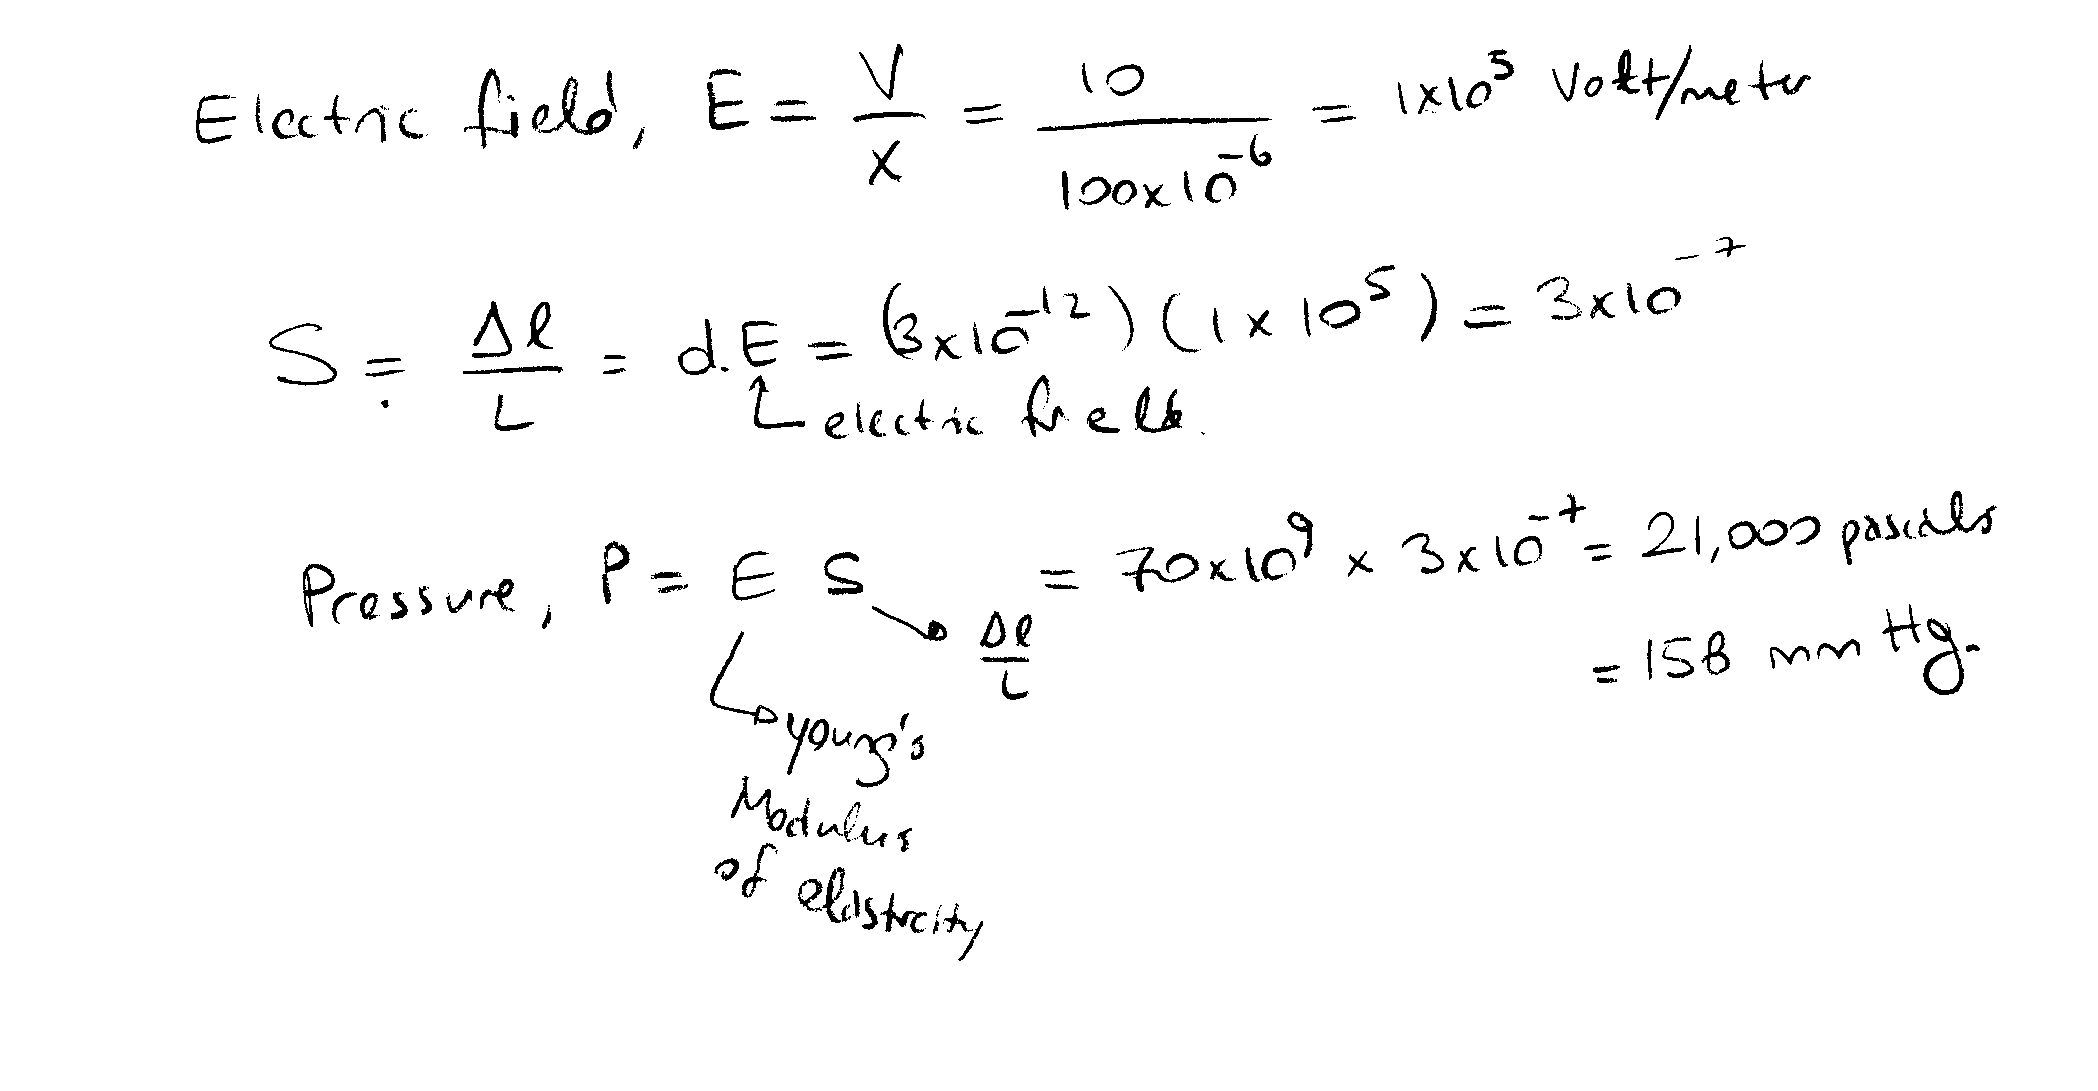 Electric field, E = V/x = 10/(100x10^-6) = 1x10^5 Volt/meter
S = Δl/L = d.E = (3x10^-12)(1x10^5) = 3x10^-7
electric field.
Pressure, P = E S = 70x10^9 x 3x10^-7 = 21,000 pascals
Δl/L
= 158 mm Hg.
young's
Modulus
of elasticity